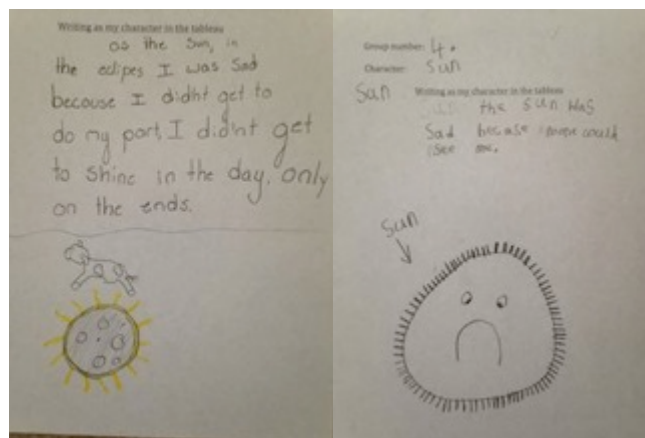 Writing as my character in the tableau
as the Sun, in
the eclipes I was Sad
becouse I didn't get to
do my part, I didn't get
to shine in the day, only
on the ends.
Group number: 4.
Character: Sun
Sun Writing as my character in the tableau
the sun was
Sad because could
see me.
Sun